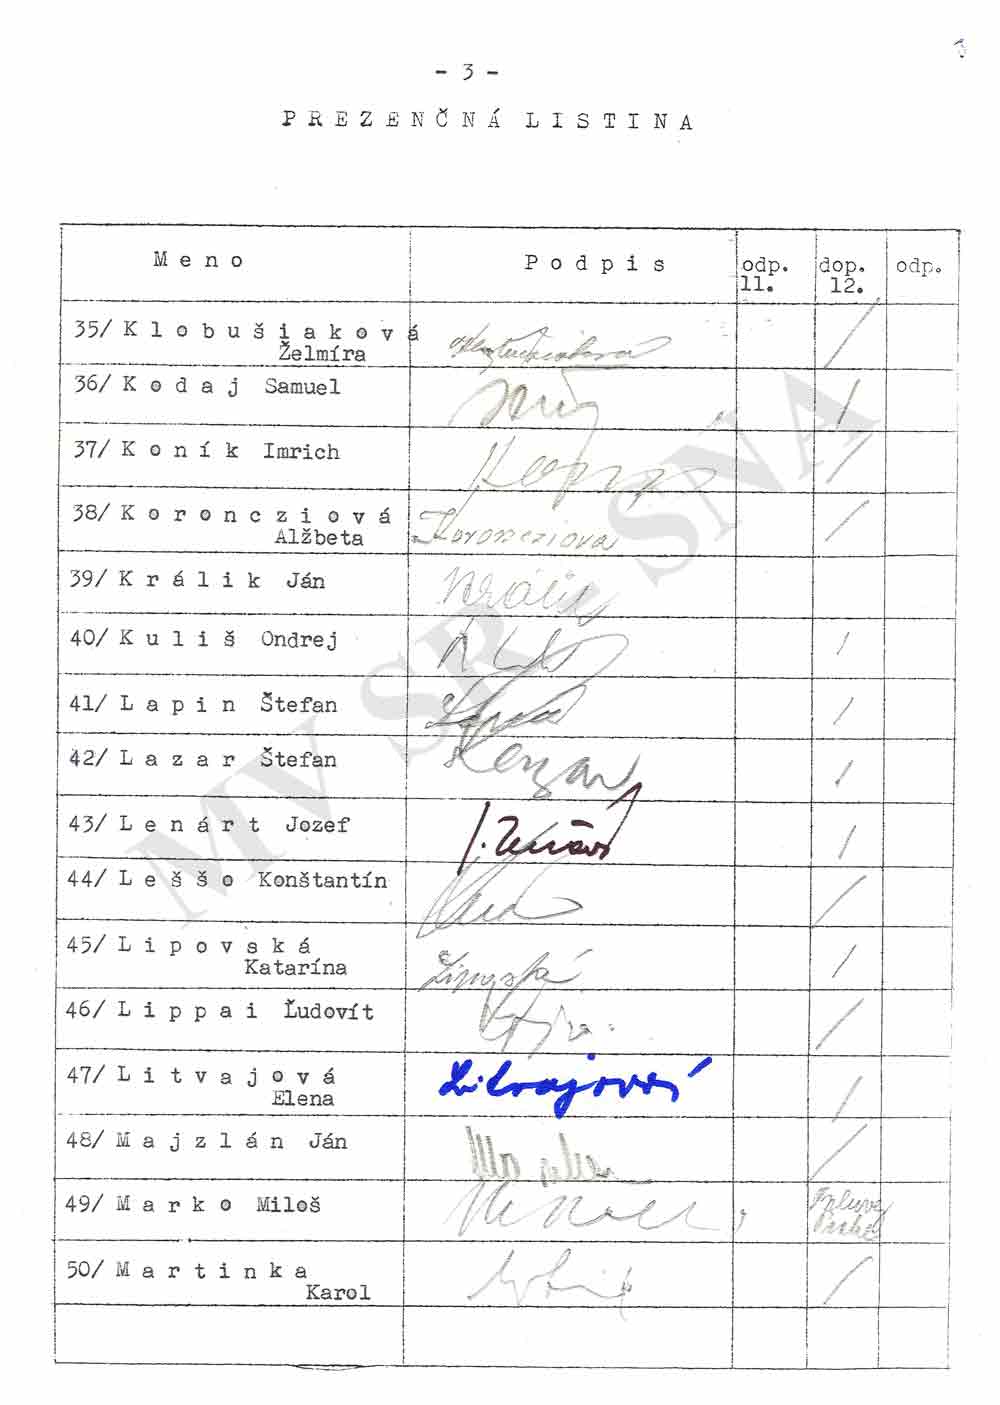 - 3 -
PREZENČNÁ LISTINA
Meno Podpis odp. dop. odp.
11. 12.
35/ Klobušiaková
Želmíra
36/ Kodaj Samuel
37/ Koník Imrich
38/ Koroncziová Koroncziova
Alžbeta
39/ Králik Ján Králik
40/ Kuliš Ondrej
41/ Lapin Štefan
42/ Lazar Štefan Lazar
43/ Lenárt Jozef J. Lenárt
44/ Leššo Konštantín
45/ Lipovská
Katarína Lipovská
46/ Lippai Ľudovít
47/ Litvajová Litvajová
Elena
48/ Majzlán Ján
49/ Marko Miloš
50/ Martinka
Karol
MV SR - SNA